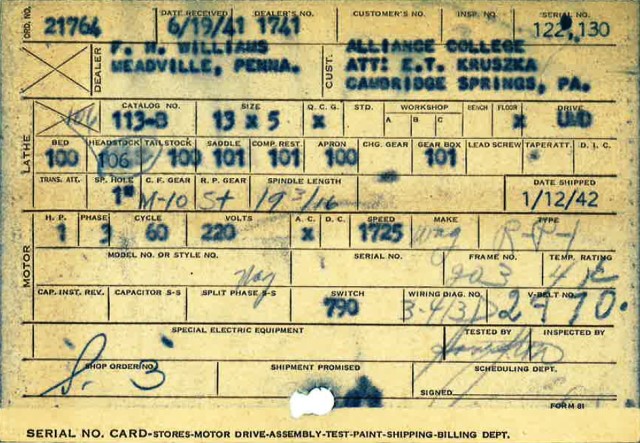 ORD. NO. DATE RECEIVED DEALER'S NO. CUSTOMER'S NO. INSP. NO. SERIAL NO.
21764 6/19/41 1741 122,130
DEALER F. H. WILLIAMS CUST. ALLIANCE COLLEGE
MEADVILLE, PENNA. ATT: E.T. KRUSZKA
CAMBRIDGE SPRINGS, PA.
LATHE CATALOG NO. SIZE Q.C.G. STD. WORKSHOP BENCH FLOOR DRIVE
A B C
106 113-B 13 x 5 x x UMD
BED HEADSTOCK TAILSTOCK SADDLE COMP. REST. APRON CHG. GEAR GEAR BOX LEAD SCREW TAPER ATT. D.I.C.
100 106 100 101 101 100 101
TRANS. ATT. SP. HOLE C. F. GEAR R. P. GEAR SPINDLE LENGTH DATE SHIPPED
1" M-10 St 19 3/16 1/12/42
MOTOR H. P. PHASE CYCLE VOLTS A. C. D. C. SPEED MAKE TYPE
1 3 60 220 x 1725 Wag R-P-1
MODEL NO. OR STYLE NO. SERIAL NO. FRAME NO. TEMP. RATING
203
CAP. INST. REV. CAPACITOR S-S SPLIT PHASE S-S SWITCH WIRING DIAG. NO. V-BELT NO.
790 2-70.
SPECIAL ELECTRIC EQUIPMENT TESTED BY INSPECTED BY
SHOP ORDER NO. SHIPMENT PROMISED SCHEDULING DEPT.
S. 3
SIGNED
FORM 81
SERIAL NO. CARD-STORES-MOTOR DRIVE-ASSEMBLY-TEST-PAINT-SHIPPING-BILLING DEPT.